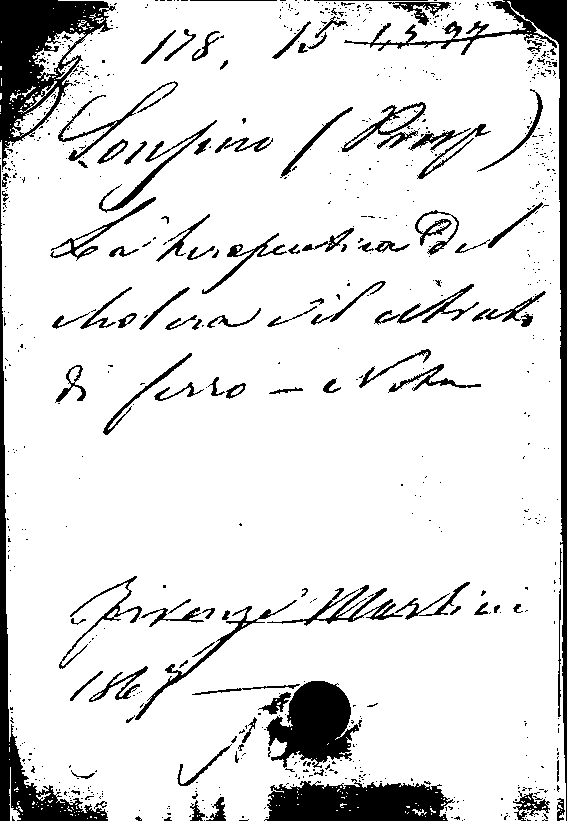 178, 15 1,5.97
Sonsino (Prosp)
La terapeutica del
cholera ed il citrato
di ferro — Nota
Firenze Martini
1867